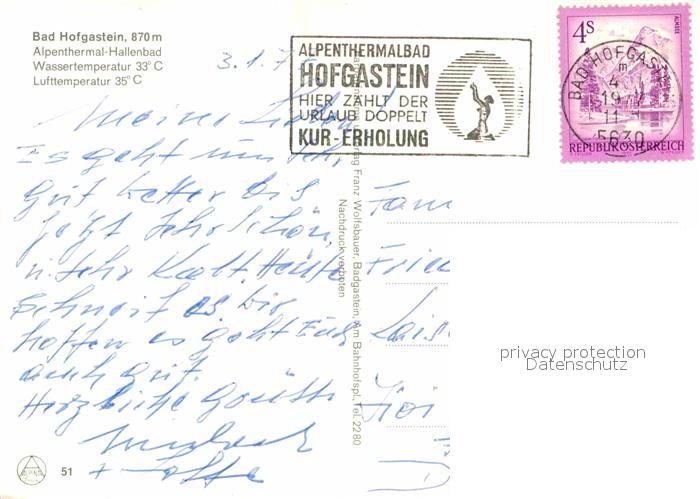 Bad Hofgastein, 870 m
Alpenthermal-Hallenbad
Wassertemperatur 33° C
Lufttemperatur 35° C
3.1.7
ALPENTHERMALBAD
HOFGASTEIN
HIER ZÄHLT DER
URLAUB DOPPELT
KUR-ERHOLUNG
4S
ALMSEE
REPUBLIK ÖSTERREICH
BAD HOFGAST
5630
Meine
Es geht uns sehr
gut Wetter bis
jetzt sehr schön,
u. sehr kalt. Heute
schneit es. Wir
hoffen es geht Euch
auch gut.
Herzliche Grüße
Fam
Verlag Franz Wolfsbauer, Badgastein, Am Bahnhofspl., Tel. 2280
Nachdruck verboten
privacy protection
Datenschutz
51